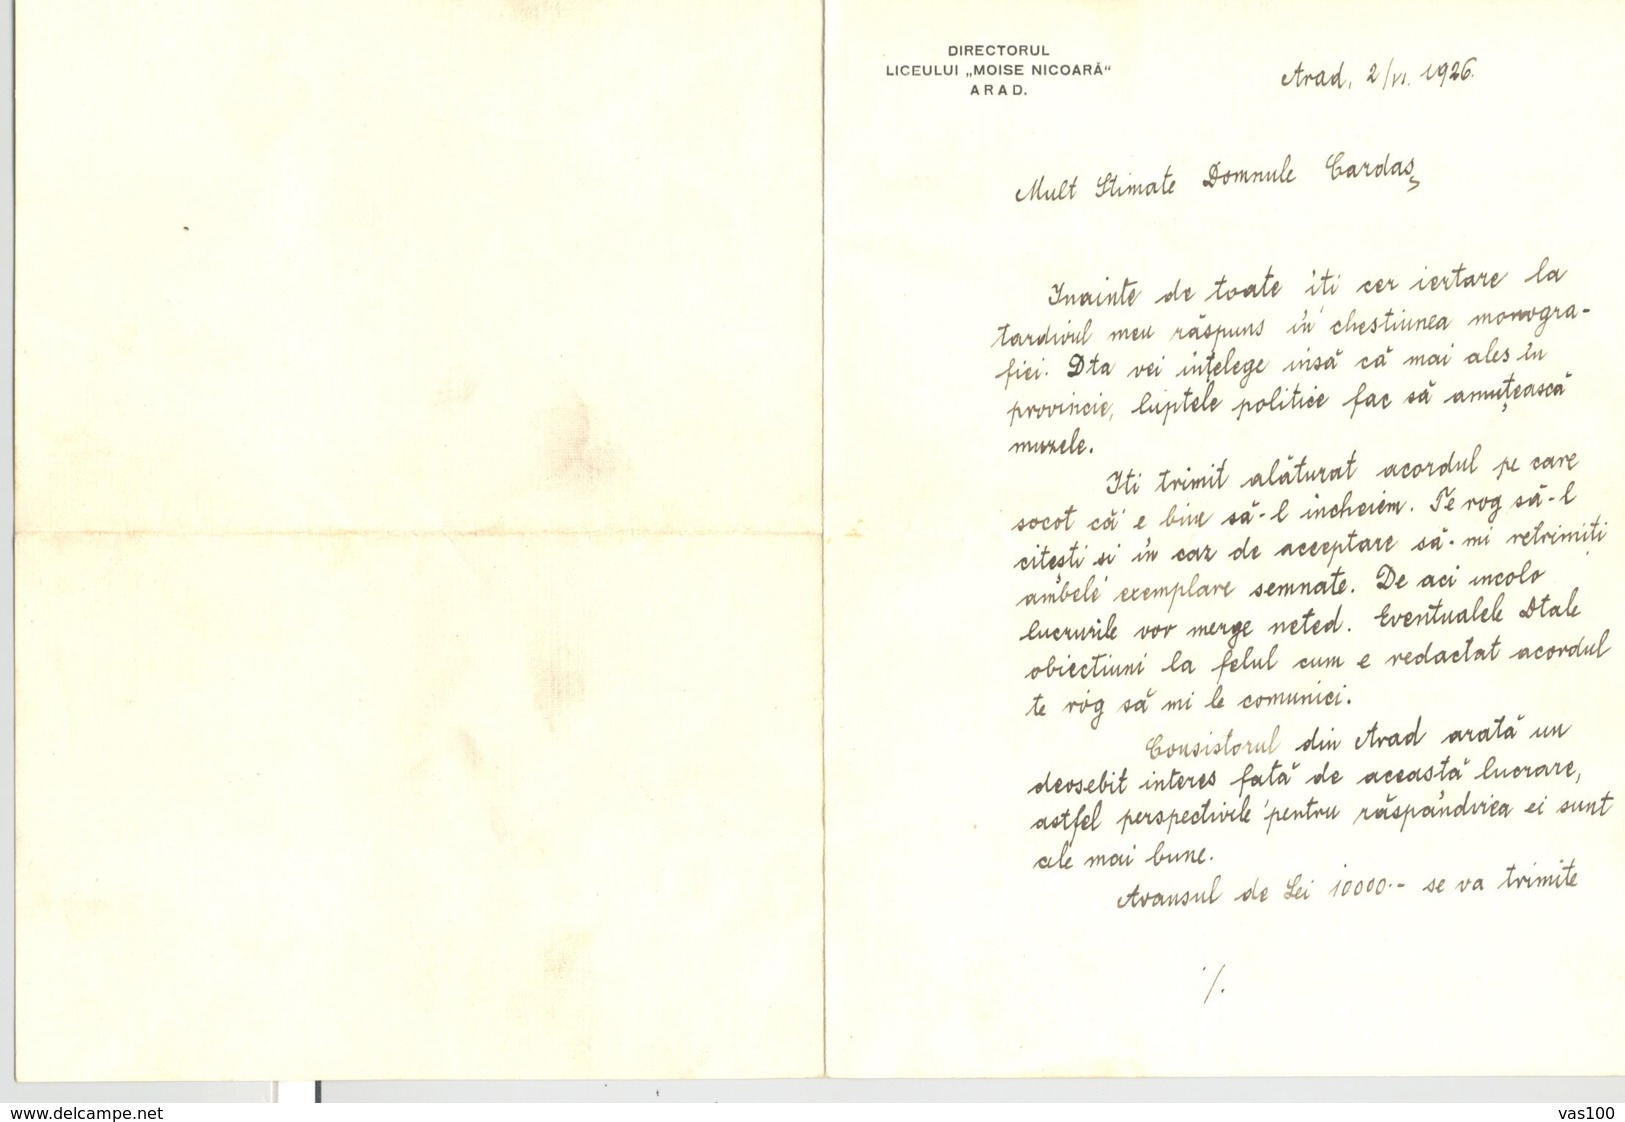 DIRECTORUL
LICEULUI „MOISE NICOARĂ“
ARAD.
Arad, 2/VI. 1926.
Mult Stimate Domnule Cardaș
Inainte de toate iți cer iertare la
tardivul meu răspuns în chestiunea monogra-
fiei. Dta vei ințelege insă că mai ales în
provincie, luptele politice fac să amuțească
muzele.
Iti trimit alăturat acordul pe care
socot că e bine să-l incheiem. Te rog să-l
citești si in caz de acceptare să-mi retrimiți
ambele exemplare semnate. De aci incolo
lucrurile vor merge neted. Eventualele Dtale
obiectiuni la felul cum e redactat acordul
te rog să mi le comunici.
Consistorul din Arad arată un
deosebit interes fată de această lucrare,
astfel perspectivele pentru răspândirea ei sunt
ale mai bune.
Avansul de Lei 10000.- se va trimite
./.
www.delcampe.net
vas100